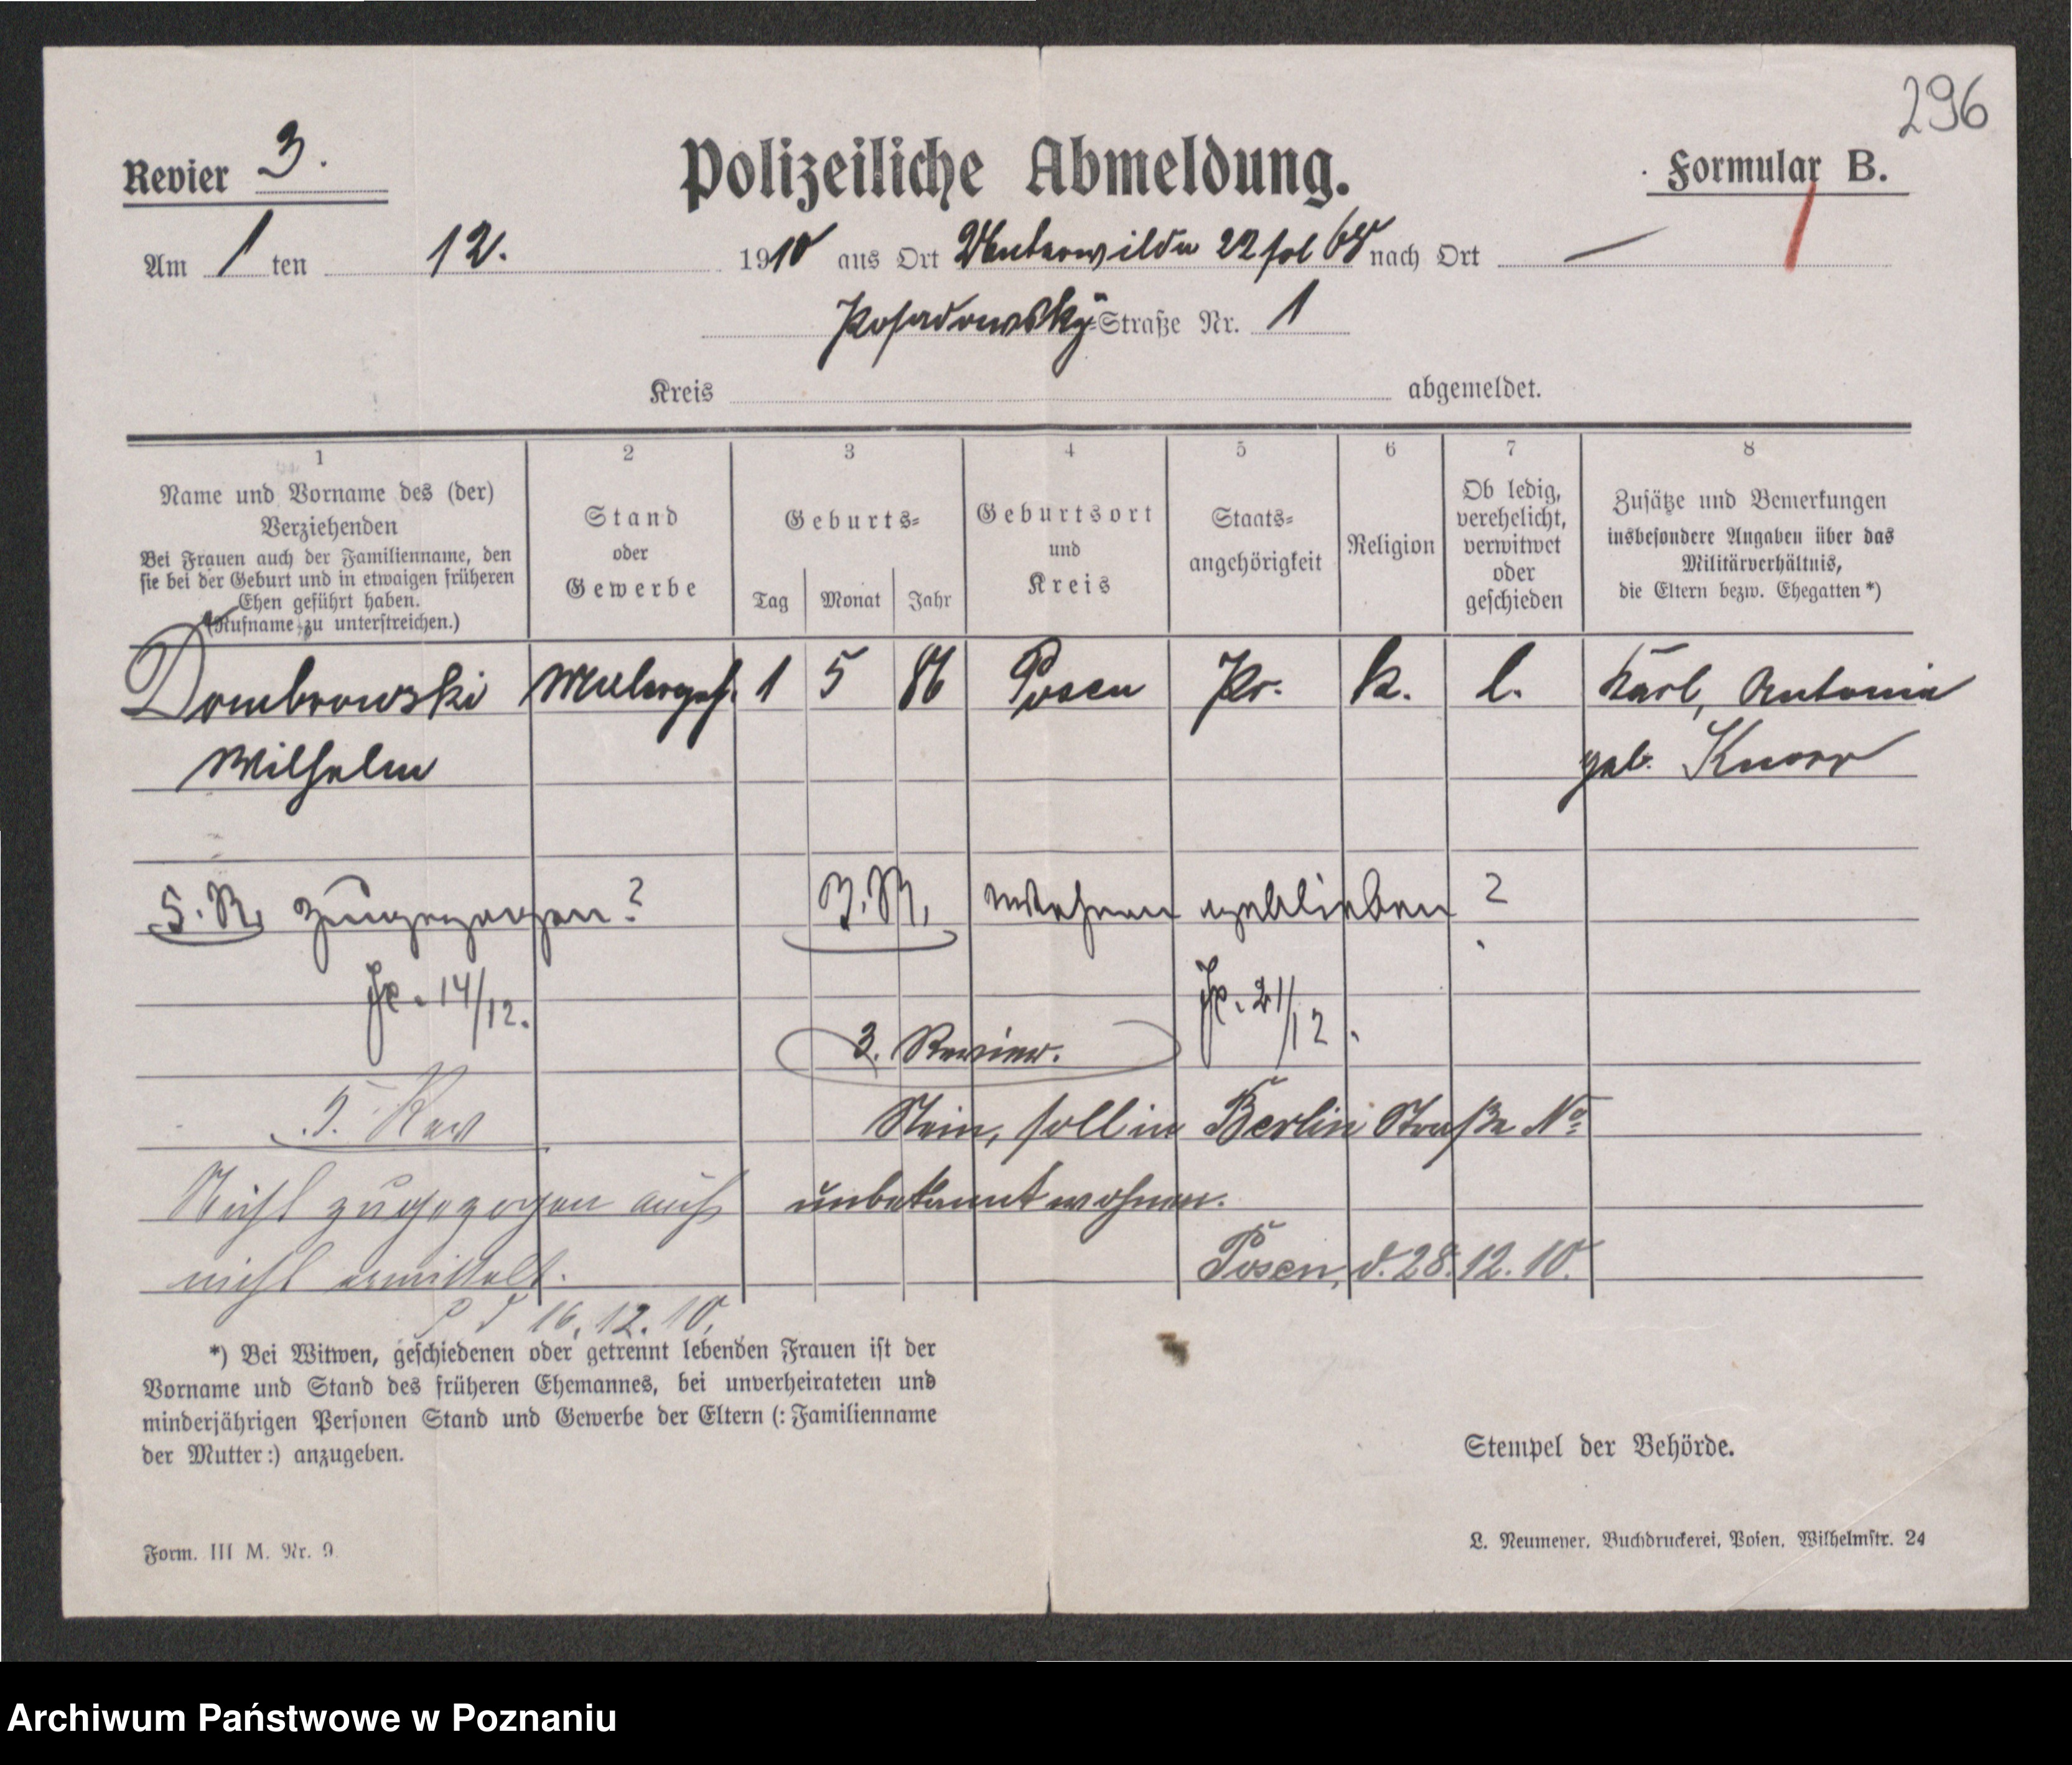 296
Revier 3.
Polizeiliche Abmeldung.
Formular B.
Am 1 ten 12. 1910 aus Ort Unterwilda 22 fol 64 nach Ort —
Posadowsky-Straße Nr. 1
Kreis abgemeldet.
1 2 3 4 5 6 7 8
Name und Vorname des (der)
Verziehenden
Bei Frauen auch der Familienname, den
sie bei der Geburt und in etwaigen früheren
Ehen geführt haben.
(Rufname zu unterstreichen.)
Stand
oder
Gewerbe
Geburts-
Tag Monat Jahr
Geburtsort
und
Kreis
Staats-
angehörigkeit
Religion
Ob ledig,
verehelicht,
verwitwet
oder
geschieden
Zusätze und Bemerkungen
insbesondere Angaben über das
Militärverhältnis,
die Eltern bezw. Ehegatten *)
Dombrowski Malergeh. 1 5 86 Posen Pr. k. l. Karl, Antonie
Wilhelm geb. Knorr
5. R. zugezogen? 3. R. wohnen geblieben ?
14/12. 21/12.
3. Revier.
5. Rev Nein, soll in Berlin Straße No
Nicht zugezogen auch unbekannt wohnen.
nicht ermittelt. Posen, d. 28.12.10.
P d 16.12.10.
*) Bei Witwen, geschiedenen oder getrennt lebenden Frauen ist der
Vorname und Stand des früheren Ehemannes, bei unverheirateten und
minderjährigen Personen Stand und Gewerbe der Eltern (: Familienname
der Mutter :) anzugeben.
Stempel der Behörde.
Form. III M. Nr. 9
L. Neumeyer, Buchdruckerei, Posen, Wilhelmstr. 24
Archiwum Państwowe w Poznaniu